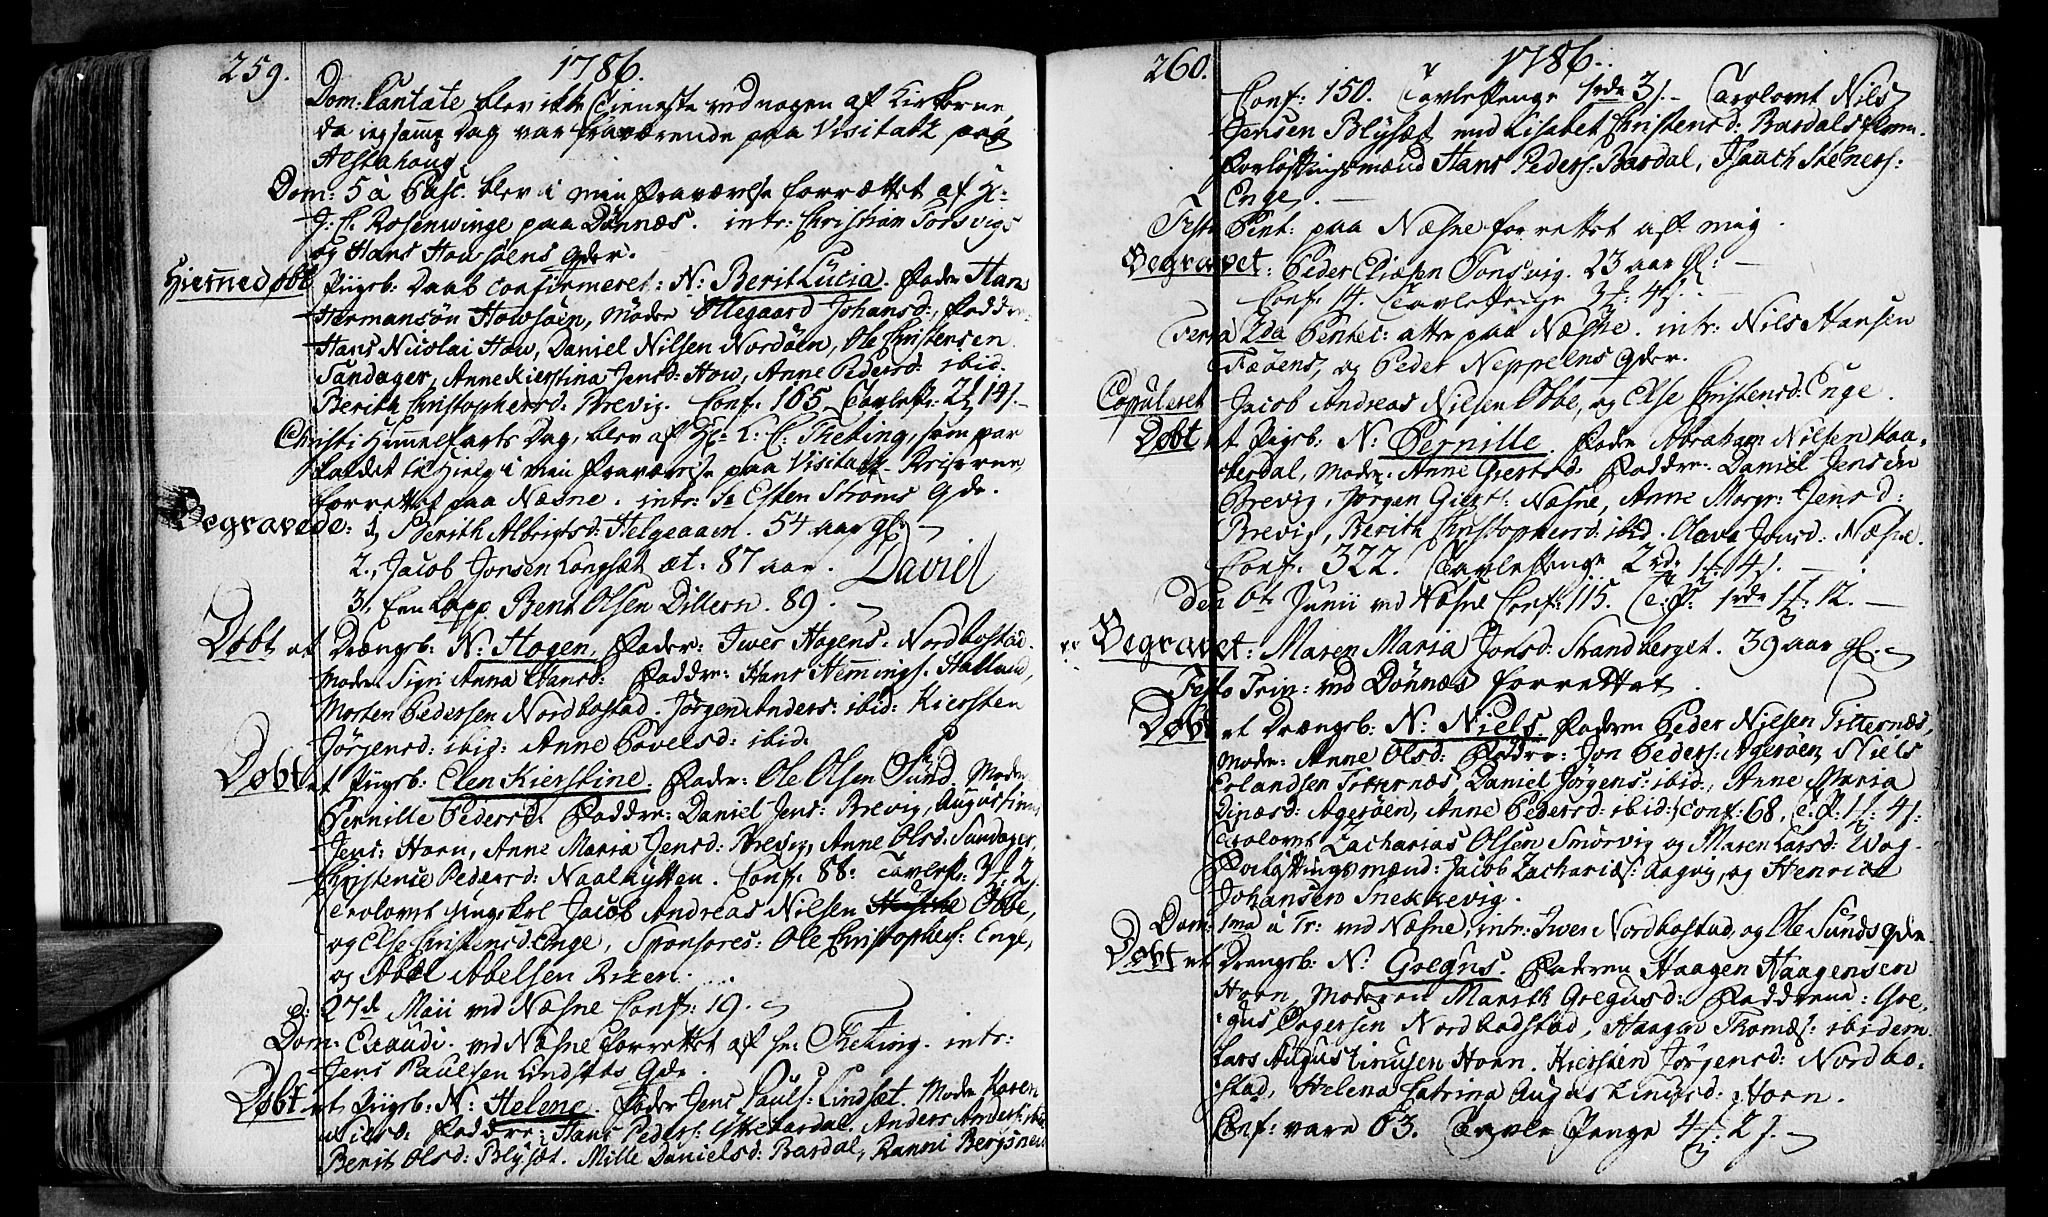 259. 1786.
Dom: Cantate blev ikke tieneste ved nogen af Kirkerne,
da jeg samme Dag var fraværende paa Visitatz paa
Alstahoug.
Dom: 5 à Pasc. blev i min Fraværelse forrættet af H:
J: C. Rosenwinge paa Dønnæs. intr: Christian Torsvigs
og Hans Howsøens qder.
Hiemmedøbt Piigeb: Daab confirmeret: N: Berit Lucia. Fader Hans
Hermansøn Howsøen, Moder Ollegaard Johansd:, Faddr:
Hans Nicolai How, Daniel Nilsen Nordøen, Ole Christensen
Sandager, Anne Kierstina Jensd: How, Anne Pedersd: ibid.
Berith Christophersd: Brevig. Conf: 165. Tavlep: 2 14 s.
Christi Himmelfarts Dag, blev af Hr: L: C: Theting, som var
kaldet til Hielp i min Fraværelse paa Visitatz-Reiserne
forrettet paa Næsne. intr: Esten Stroms qde.
Begravede: 1, Berith Albrigtsd: Helgeaaen. 54 aar gl: —
2., Jacob Jonsen Langsæt æt: 87 aar. David
3, Een Lapp Bent Olsen Dillern. 89. —
Døbt et Drængeb: N: Hagen, Fader: Iwer Hagens: Nordbostad.
Moder Sigri Anna Hansd: Faddre: Hans Hemmings: Halland,
Morten Pedersen Nordbostad. Jørgen Anders: ibid: Kiersten
Jørgensd: ibid: Anne Povelsd: ibid.
Døbt et Piigeb: Elen Kierstine. Fader: Ole Olsen Sund. Moder
Pernille Pedersd. Faddre: Daniel Jens: Brevig, Augustinus
Jens: Horn, Anne Maria Jensd: Brevig, Anne Olsd: Sandager,
Christense Pedersd: Naalhytten. Conf: 88: Tavlep: 3 2 s.
Trolovet Ungekarl Jacob Andreas Nilsen Obbe,
og Else Christensd: Enge, Sponsores: Ole Christophers: Enge,
og Abel Abelsen
d: 27de Maii ved Næsne Conf: 19. —
Dom: Exaudi. ved Næsne forrettet af Hr: Theting. intr:
Jens Paulsen Lindsæts qde.
Døbt et Piigeb: N: Helene. Fader Jens Pauls: Lindsæt. Moder Karen
Nilsd: Faddre: Hans Peders: Anders Anders: ibid
Berit Olsd: Blysæt. Mille Danielsd: Bardal, Ranni Bergsnev
260. 1786.
Conf: 150. Tavlepenge 1rdr 3 s. — Trolovet Nils
Jensen Blysæt med Lisabet Christensd: Bardalsflem.
Forløftningsmænd Hans Peders: Bardal, Fauch Steners:
Enge. —
Festo Pent: paa Næsne forrettet aff mig.
Begravet: Peder Eliæsn Tonsvig. 23 aar gl: —
Conf: 14. Tavlepenge 3 : 4 s.
Feria 2da Pentec: atter paa Næsne. intr: Nils Hansen
Fæøens, og Peder Neppelns qder.
Copuleret Jacob Andreas Nielsen Obbe, og Else Christensd: Enge.
Døbt et Pigeb: N: Pernille. Fader Abraham Nilsen Kaa-
verdal, Moder: Anne Giertsd: Faddre: Daniel Jensen
Brevig, Jørgen Næsne, Anne Margr: Jensd:
Brevig, Berith Christophersd: ibid. Olava Jonsd: Næsne.
Conf: 322. Tavlepenge 2rd: 1 : 4 s. —
Den 6te Junii ved Næsne Conf: 115. T: P: 1rdr 1 : 12. —
Begravet: Maren Maria Jonsd: Strandberget. 39 aar gl. —
Festo Trin: ved Dønnæs forrettet.
Døbt et Drængeb: N: Niels. Faderen Peder Nielsen Titternæs,
Moder: Anne Olsd: Faddre: Jon Peders: Agerøen, Niels
Erlandsen Titternæs, Daniel Jørgens: ibid:, Anne Maria
Dinæsd: Agerøen, Anne Pedersd: ibid: Conf: 68, T: P: 1 : 4 s.
Trolovet Zacharias Olsen Smørvig og Maren Larsd: Wog.
Forløftningsmænd: Jacob Zachariæs: Aagvig, og Henrick
Johansen Snekkevig.
Dom: 1ma à Tr: ved Næsne, intr: Iwer Nordbostad, og Ole Sunds qder.
Døbt et Drengeb: N: Gregus. Faderen Haagen Haagensen
Horn, Moderen Mareth Gregusd: Faddrene: Gre-
gus Nordbodstad, Haagen Thomæs: ibidem.
Lars Augustinusen Horn. Kiersten Jørgensd: Nordbo-
stad, Helena Catrina Augustinusd: Horn.
Conf: vare 63. Tavle Penge 4 : 2 s. —